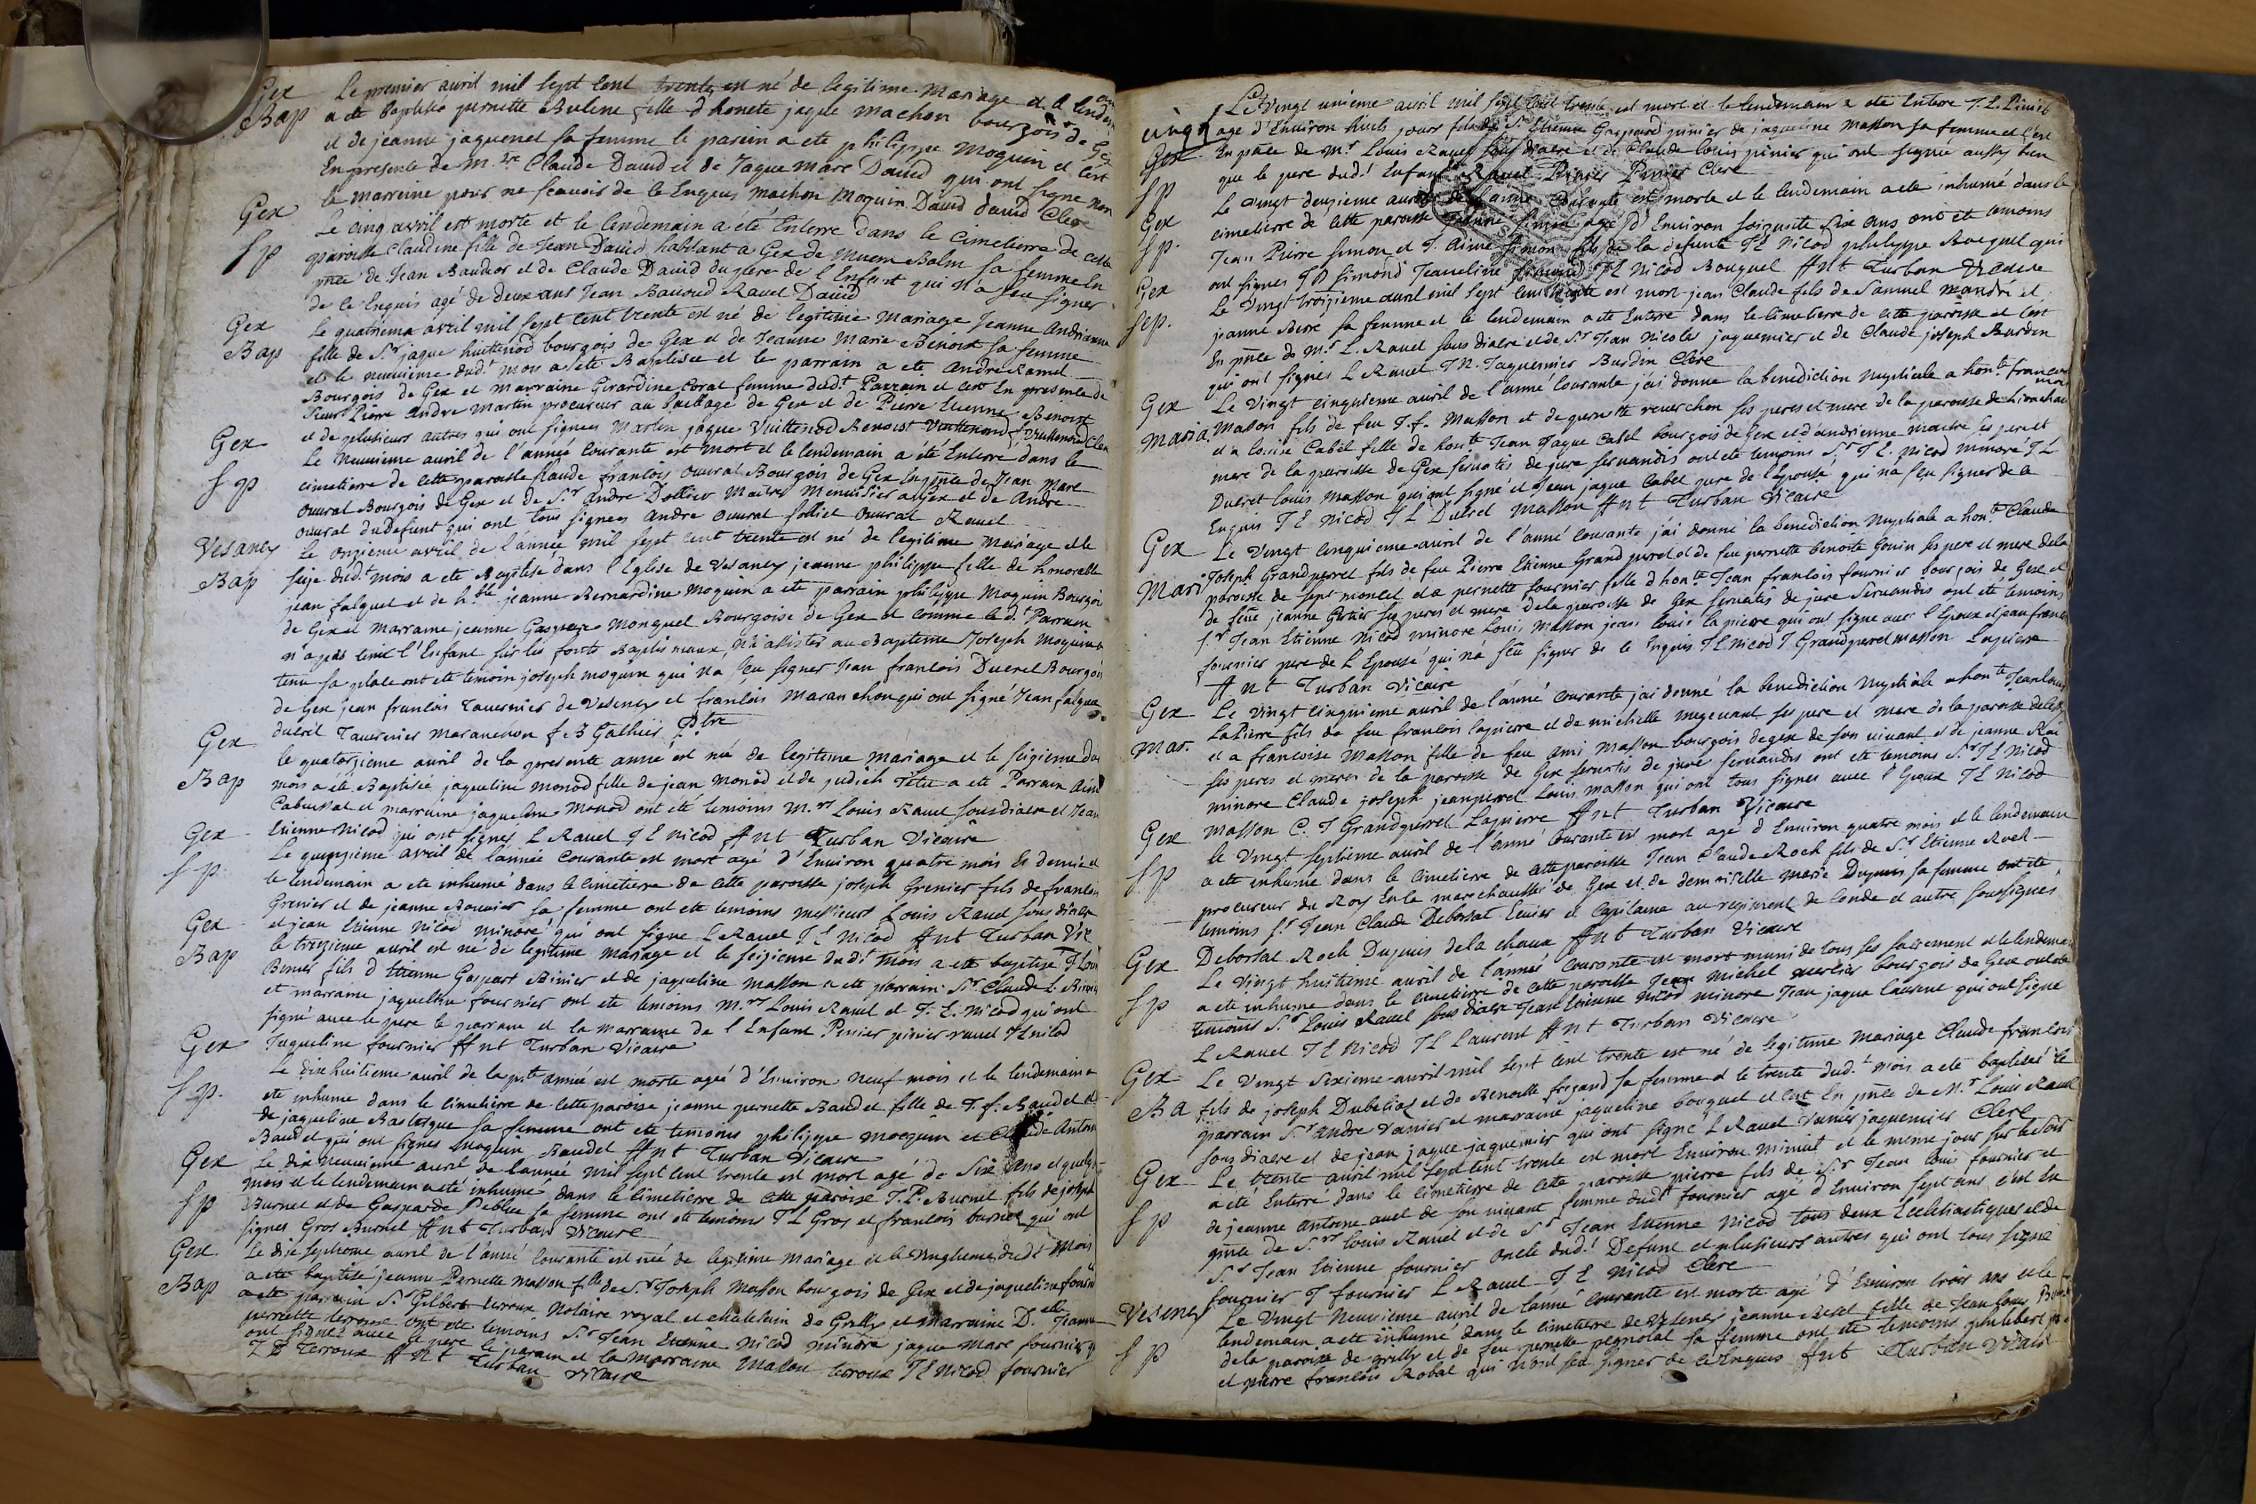 Gex Le premier avril mil sept cent trente est né de legitime mariage et le lendem
Bap a ete Baptisée pernette fille d honete jaque machon bourgois de Gex
et de jeanne jaquenet sa femme le parein a ete philippe Moquin et c'est
En presence de M.re Claude David et de Jaque Marc David qui ont signe non
la marreine pour ne scavoir de ce Enquis machon Moquin David david Clerc
Gex Le cinq avril est morte et le lendemain a eté Enterre dans le Cimetierre de cette
Sp paroisse Claudine fille de Jean David habitant a Gex de sa femme En
pnce de Jean Baudor et de Claude David du pere de l'Enfant qui n'a sceu signer
de ce Enquis agé de deux ans Jean Ravel David
Gex Le quatrieme avril mil sept cent trente est né de legitime Mariage Jeanne Andrianne
Bap fille de S.r jaque huittenod bourgois de Gex et de Jeanne Marie Benoist sa femme
et le neuvieme dud.t mois a eté Baptisée et le parrain a ete andre Ramel
Bourgois de Gex et marraine Girardine Coral femme dud.t Parrain et c'est En presence de
Sieurs Pierre Andre Martin procureur au Bailliage de Gex et de Pierre Etienne Benoist
et de plusieurs autres qui ont signees Martin jaque Vuittenod Benoist Vuittenod Clerc
Gex Le Neuvieme avril de l'année courante est mort et le lendemain a été Enterré dans le
Sp cimetierre de cette paroisse Claude francois ouvrat Bourgois de Gex En pnce de Jean Marc
ouvrat Bourgois de Gex et de S.r Andre Maitre Menuisier a Gex et de Andre
ouvrat du Defunt qui ont tous signees andre ouvrat ouvrat Ravel
Vesancy le onzieme avril de l'année mil sept cent trente est né de legitime mariage et le
Bap seize dud.t mois a ete Baptisé dans l'Eglise de Vesancy jeanne philippe fille de honorable
jean falquet et de h.ble jeanne Bernardine Moquin a ete parrain philippe Moquin Bourgois
de Gex et marraine jeanne Gasparde Monquel Bourgoise de Gex et comme le d.t Parrain
n'a pas tenu l'Enfant sur les fonts Baptismaux, n'a assister au Baptême Joseph moquin a
tenu sa place ont ete temoin joseph moquin qui na sceu signer Jean francois Ducret Bourgois
de Gex jean francois Tavernier de Vesancy et francois Maranchon qui ont signé Jean falquet
ducret Tavernier maranchon J B Gathier P.tre
Gex le quatorzieme avril de la presente anné est né de legitime mariage et le seizieme du
Bap mois a ete Baptisée jaqueline monod fille de jean monod et de judich Tétu a ete Parrain
Cabussat et marraine jaqueline Monod ont eté temoins M.rs Louis Ravel sousdiacre et Jean
Etienne Nicod qui ont signes L Ravel J E Nicod Ant Turban Vicaire
Gex Le quinzieme avril de l'année courante est mort agé d'Environ quatre mois Et demie et
Sp le lendemain a ete inhumé dans le cimetierre de cette paroisse joseph Grenier fils de francois
Grenier et de jeanne Bouvier sa femme ont ete temoins messieurs Louis Ravel sous diacre
et jean Etienne Nicod minoré qui ont signe L Ravel J E Nicod Ant Turban Vic
Gex le treizieme avril est né de legitime mariage et le seizieme dud.t mois a ete baptisé J Louis
Bap fils d Etienne Gaspart Binier et de jaqueline masson a ete parrain S.r Claude L.
et marraine jaqueline fournier ont ete temoins M.rs Louis Ravel et J. E. Nicod qui ont
signé avec le pere le parrain et la marraine de l Enfant Pinier pinier ravel J E nicod
Jaqueline fournier Ant Turban Vicaire
Gex Le dix huitieme avril de la pnte année est morte ageé d'Environ neuf mois et le lendemain a
Sp ete inhume dans le cimetierre de cette paroisse jeanne pernette Baudet fille de J. f. Baudet et
de jaqueline sa femme ont ete temoins philippe moquin et Claude Antoine
Baudet qui ont signes Moquin Baudet Ant Turban Vicaire
Gex Le dix neuvieme avril de l'année mil sept cent trente est mort agé de six ans et quelque
Sp mois et le lendemain a ete inhumé dans le cimetierre de cette paroise J. P. Burnet fils de joseph
Burnet et de Gasparde sa femme ont ete temoins J L Gros et francois burnet qui ont
signes Gros Burnet Ant Turban Vicaire
Gex Le dix septieme avril de l'anné courante est née de legitime mariage et le vingtieme dud.t mois
Bap a ete baptisé jeanne Pernette masson fille de S.r Joseph Masson bourgois de Gex et de jaqueline fournier
a ete parrain S.r Gilbert terroux Notaire royal et chatelain de Grilly et marraine D.elle Jeanne
pernette terroux ont ete temoins S.r Jean Etienne Nicod minore jaque Marc fournier
ont signez avec le pere le parain et la Marraine Masson terroux J E Nicod fournier
terroux Ant Turban Vicaire
Le Vingt unieme avril mil sept cent trente est mort et le lendemain a ete Enterre J. L. Pinier
vingt age d'Environ huit jours fils de S.r Etienne Gaspard pinier de jaqueline Masson sa femme et c'est
Gex En pnce de M.r Louis Ravel sous diacre et de Claude louis pinier qui ont signé aussy bien
Sp que le pere dud.t Enfant Ravel Pinier Pinier Clerc
Gex Le vingt deuxieme avril de l'anné courante est morte et le lendemain a ete inhumé dans le
Sp. cimetierre de cette paroisse agé d'Environ soixante six ans ont ete temoins
Jean Pierre Simon et J. Aimé Simon fils de la defunte J E Nicod philippe Bouquet qui
ont signes J P Simond J E Nicod Bouquet Ant Turban Vicaire
Gex Le vingt troizieme avril mil sept cent trente est mort jean Claude fils de Samuel mandré et
Sep. jeanne sa femme et le lendemain a ete Enterré dans le Cimetierre de cette paroisse et c'est
En pnce de M.r L. Ravel sous diacre et de S.r Jean Nicolas jaquemier et de Claude joseph Burdin
qui ont signes L Ravel J N. Jaquemier Burdin Clerc
Gex Le Vingt cinquieme avril de l'anné courante j'ai donné la benediction Nuptiale a hon.te francois
Maria. Masson fils de feu J. f. Masson et de pernette reverchon ses peres et mere de la paroisse de
et a Louise Cabel fille de hon.te Jean Jaque Cabel bourgois de Gex et d'andrienne ses pere et
mere de la paroisse de Gex servatis de jure servandis ont ete temoins S.r J E. Nicod minoré J L
Ducret Louis Masson qui ont signé et Jean jaque Cabel pere de l'Epouse qui na sceu signer de ce
Enquis J E Nicod J L Ducret Masson Ant Turban Vicaire
Gex Le Vingt cinquieme avril de l'anné courante j'ai donné la benediction Nuptiale a hon.te Claude
Mari Joseph Grandperret fils de feu Pierre Etienne Grand perret et de feu pernette benoite Gouin ses pere et mere de la
paroisse de sept moncel et a pernette fournier fille d hon.te Jean francois fournier bourgois de Gex et
de feüe jeanne ses peres et mere de la paroisse de Gex servatis de jure servandis ont ete temoins
S.r Jean Etienne Nicod minore Louis Masson jean Louis la pierre qui ont signe avec l'Epoux et jean francois
fournier pere de L Epouse qui na sceü signer de ce Enquis J E Nicod J Grandperret Masson Lapierre
Ant Turban Vicaire
Gex Le Vingt cinquieme avril de l'anné courante jai donné la benediction Nuptiale a hon.te Jean louis
Mar. LaPierre fils de feu francois lapierre et de michelle megevant ses pere et mere de la paroisse de Gex
et a francoise Masson fille de feu Ami Masson bourgois de gex de son vivant et de jeanne
ses peres et meres de la paroisse de Gex servatis de jure servandis ont ete temoins S.r J E Nicod
minore Claude joseph jeanperret Louis masson qui ont tous signes avec l'Epoux J E Nicod
Masson C. J Grandperret Lapierre Ant Turban Vicaire
Gex le Vingt septieme avril de l'anné courante est mort agé d Environ quatre mois et le lendemain
Sp a ete inhume dans le cimetierre de cette paroisse Jean Claude Roch fils de S.r Etienne Roch
procureur du Roy En la marechaussé de Gex et de demoiselle Marie Dupuis sa femme ont ete
temoins S.r Jean Claude Debossat Ecuier et Capitaine au regiment de Conde et autre soussignes
Debossat Roch Dupuis dela chaux Ant Turban Vicaire
Gex Le vingt huitieme avril de l'année courante est mort muni de tous ses sacrement et le lendemain
Sp a ete inhume dans le cimetierre de cette paroisse Jean Michel mercier bourgois de Gex ont ete
temoins S.r Louis Ravel sous diacre Jean Etienne Nicod minore Jean jaque Laurent qui ont signe
L Ravel J E Nicod J L Laurent Ant Turban Vicaire
Gex Le Vingt Sixieme avril mil sept cent trente est né de legitime Mariage Claude francois
Ba fils de joseph Dubelias et de Benoitte frezard sa femme et le trente dud.t mois a ete baptisé le
parrain S.r Andre Vanier et maraine jaqueline bouquet et c'est En pnce de M.r Louis Ravel
sous diacre et de jean jaque jaquemier qui ont signe L Ravel Vanier jaquemier Clerc
Gex Le trente avril mil sept cent trente est mort Environ minuit et le meme jour sur le soir
Sp a eté Enterré dans le cimetierre de cette paroisse pierre fils de S.r Jean louis fournier et
de jeanne antoine avel de son vivant femme dud.t fournier agé d Environ sept ans c'est En
pnce de S.rs louis Ravel et de S.r Jean Etienne Nicod tous deux Ecclesiastiques et de
S.r Jean Etienne fournier oncle dud.t Defunt et plusieurs autres qui ont tous signe
fournier J fournier L Ravel J E Nicod Clerc
Vesency Le Vingt Neuvieme avril de l'anné courante est morte agé d'Environ trois ans et le
Sp lendemain a ete inhumé dans le cimetierre de Vesency jeanne fille de Jean louis
de la paroisse de grilly et de feu pernette pegnolat sa femme ont ete temoins philibert
et pierre francois Robat qui n'ont sceu signer de ce Enquis Ant Turban Vicaire